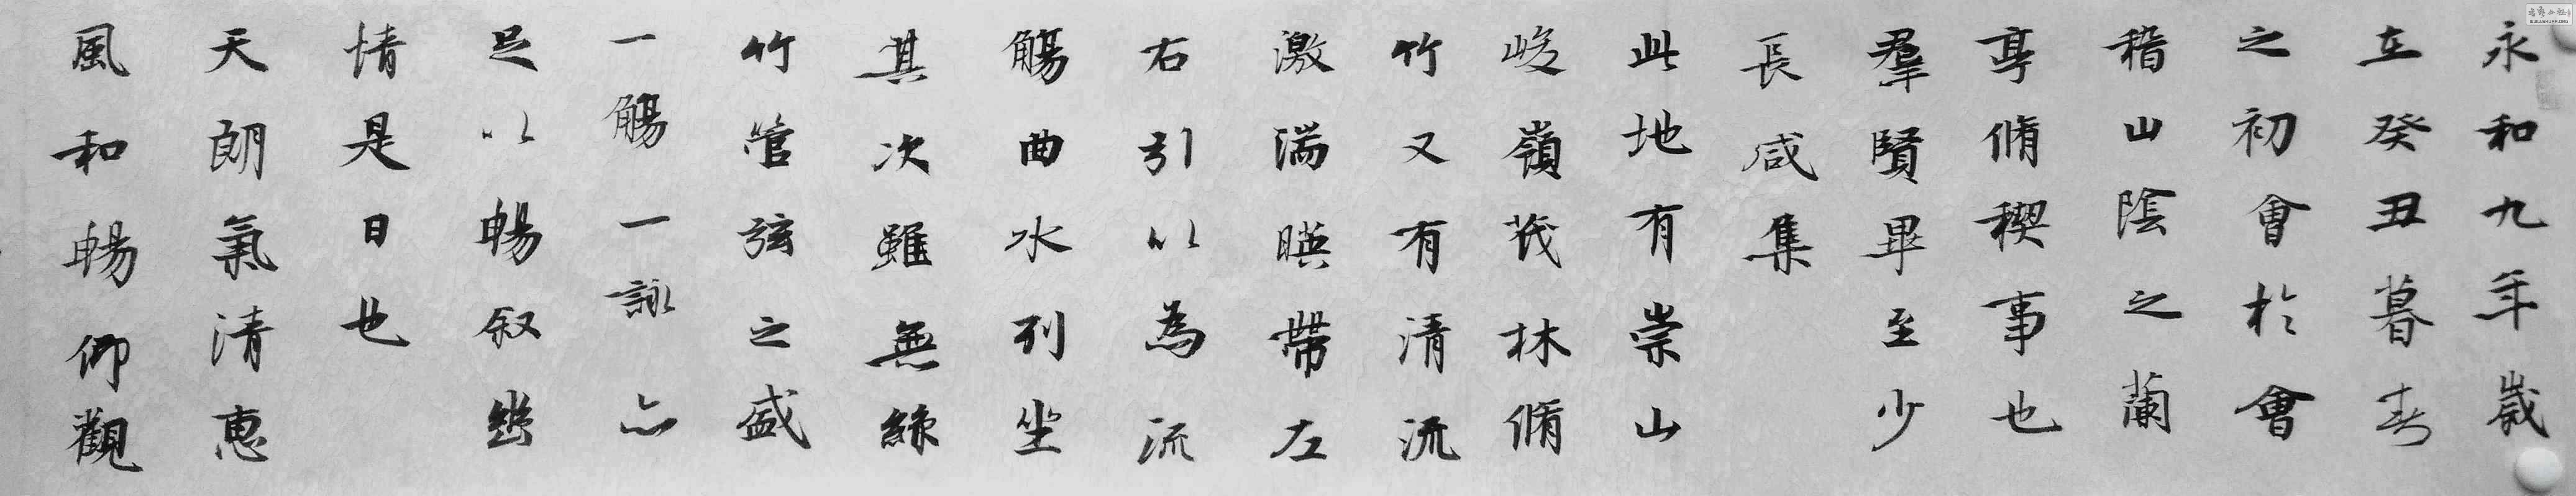 永和九年歲
在癸丑暮春
之初會於會
稽山陰之蘭
亭脩稧事也
羣賢畢至少
長咸集
此地有崇山
峻嶺茂林脩
竹又有清流
激湍暎帶左
右引以為流
觴曲水列坐
其次雖無絲
竹管弦之盛
一觴一詠亦
足以暢叙幽
情是日也
天朗氣清惠
風和暢仰觀